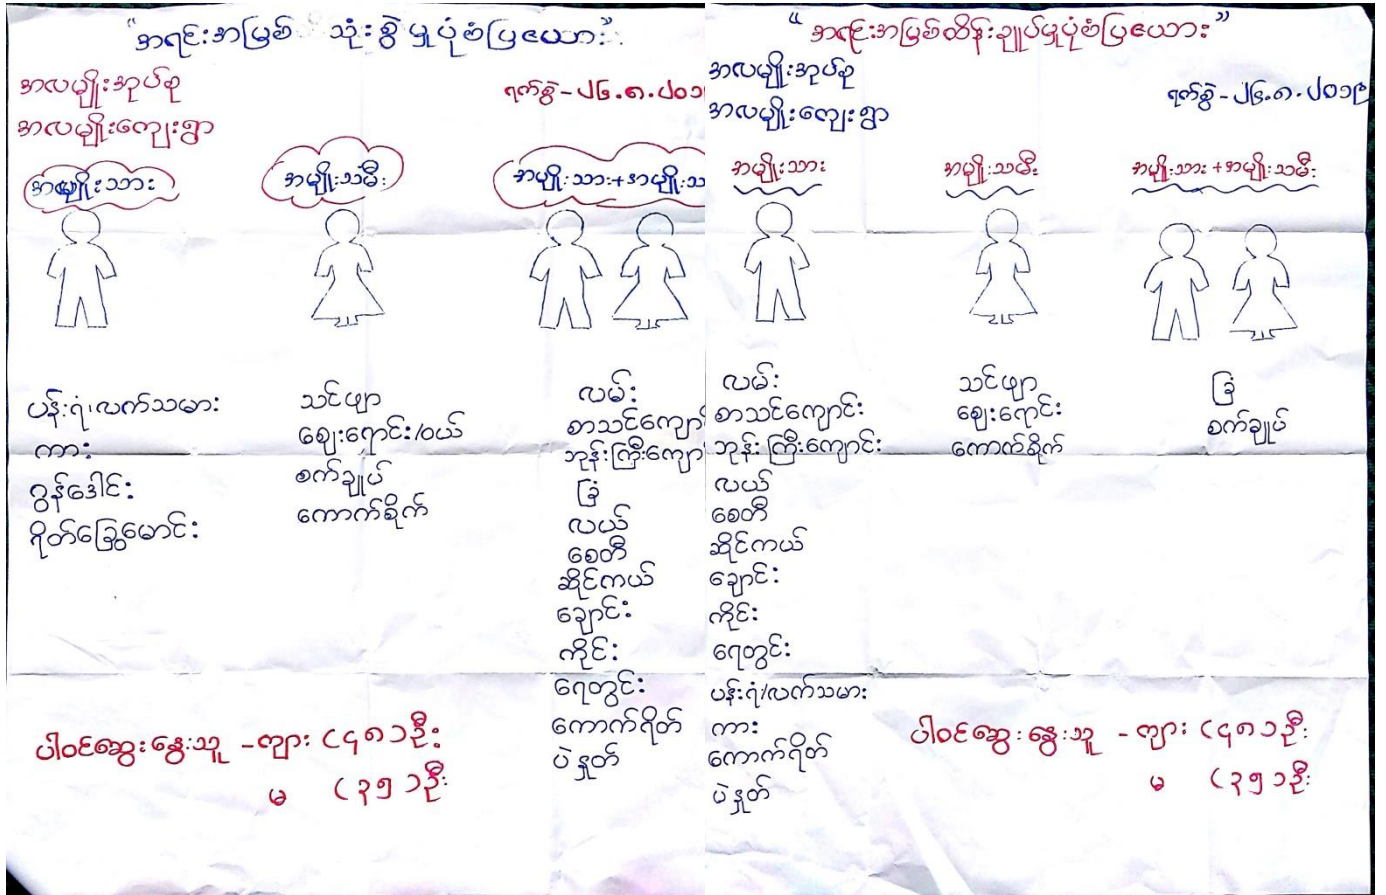 "အရင်းအမြစ် သုံးစွဲမှုပုံစံပြဇယား"
အလမျိုးအုပ်စု
ရက်စွဲ-၂၆.၈.၂၀၁
အလမျိုးကျေးရွာ
အမျိုးသား
အမျိုးသမီး
အမျိုးသား+အမျိုးသ
ပန်းရံ၊လက်သမား
ကား
ဂွန်ဒေါင်း
ရိတ်ခြွေမောင်း
သင်ဖျာ
ဈေးရောင်း/ဝယ်
စက်ချုပ်
ကောက်စိုက်
လမ်း
စာသင်ကျော
ဘုန်းကြီးကျော
ခြံ
လယ်
စေတီ
ဆိုင်ကယ်
ချောင်း
ကိုင်း
ရေတွင်း
ကောက်ရိတ်
ပဲနှုတ်
ပါဝင်ဆွေးနွေးသူ -ကျား (၄၈)ဦး
မ (၃၅)ဦး
"အရင်းအမြစ်ထိန်းချုပ်မှုပုံစံပြဇယား"
အလမျိုးအုပ်စု
ရက်စွဲ-၂၆.၈.၂၀၁၉
အလမျိုးကျေးရွာ
အမျိုးသား
အမျိုးသမီး
အမျိုးသား+အမျိုးသမီး
လမ်း
စာသင်ကျောင်း
ဘုန်းကြီးကျောင်း
လယ်
စေတီ
ဆိုင်ကယ်
ချောင်း
ကိုင်း
ရေတွင်း
ပန်းရံ/လက်သမား
ကား
ကောက်ရိတ်
ပဲနှုတ်
သင်ဖျာ
ဈေးရောင်း
ကောက်စိုက်
ခြံ
စက်ချုပ်
ပါဝင်ဆွေးနွေးသူ - ကျား (၄၈)ဦး
မ (၃၅)ဦး